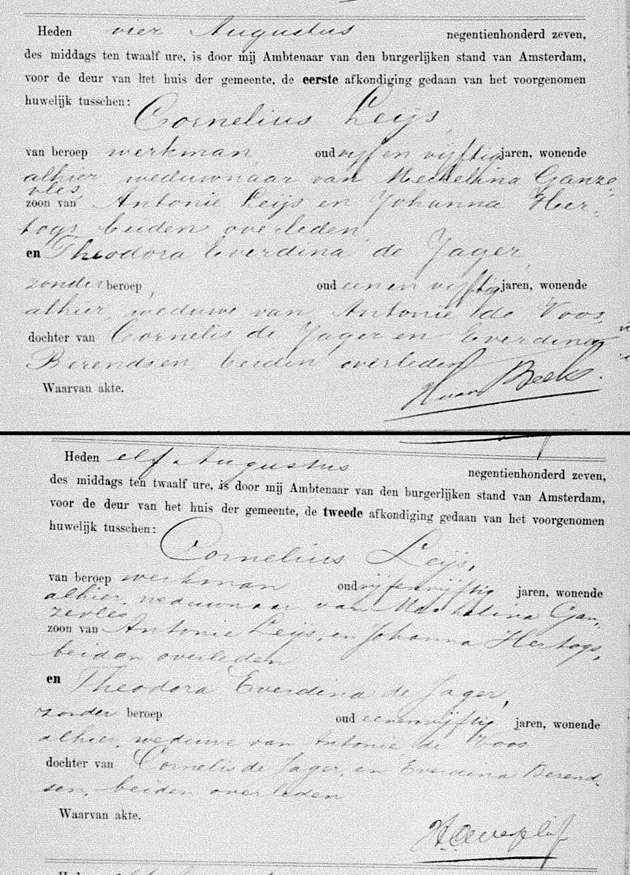 Heden vier Augustus negentienhonderd zeven,
des middags ten twaalf ure, is door mij Ambtenaar van den burgerlijken stand van Amsterdam,
voor de deur van het huis der gemeente, de eerste afkondiging gedaan van het voorgenomen
huwelijk tusschen:
Cornelius Leijs,
van beroep werkman, oud vijf en vijftig jaren, wonende
alhier, weduwnaar van Mechelina Ganze
vles,
zoon van Antonie Leijs en Johanna Her-
togs, beiden overleden
en Theodora Everdina de Jager,
zonder beroep, oud een en vijftig jaren, wonende
alhier, weduwe van Antonie de Voos,
dochter van Cornelis de Jager en Everdina
Berendsen, beiden overleden
Waarvan akte.
Heden elf Augustus negentienhonderd zeven,
des middags ten twaalf ure, is door mij Ambtenaar van den burgerlijken stand van Amsterdam,
voor de deur van het huis der gemeente, de tweede afkondiging gedaan van het voorgenomen
huwelijk tusschen:
Cornelius Leijs,
van beroep werkman oud vijfenvijftig jaren, wonende
alhier, weduwnaar van Mechelina Gan,
zevles,
zoon van Antonie Leijs, en Johanna Hertogs,
beiden overleden
en Theodora Everdina de Jager,
zonder beroep oud eenenvijftig jaren, wonende
alhier, weduwe van Antonie de Voos
dochter van Cornelis de Jager, en Everdina Berend-
sen, beiden overleden
Waarvan akte.